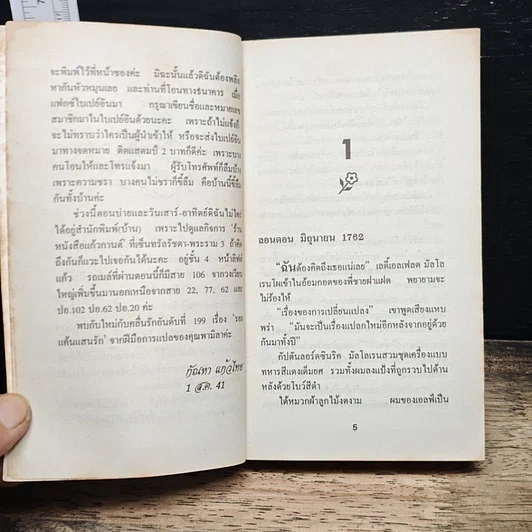 จะพิมพ์ไว้ที่หน้าซองค่ะ มิฉะนั้นแล้วดิฉันต้องพลิก
หากันหัวหมุนเลย และท่านที่โอนทางธนาคาร เมื่อ
แฟกซ์ใบเปย์อินมา กรุณาเขียนชื่อและหมายเลข
สมาชิกมาในใบเปย์อินด้วยนะคะ เพราะถ้าไม่แจ้งก็
จะไม่ทราบว่าใครเป็นผู้นำเข้าให้ หรือจะส่งใบเปย์อิน
มาทางจดหมาย ติดแสตมป์ 2 บาทก็ดีค่ะ เพราะบาง
คนโอนให้และโทรแจ้งมา ผู้รับโทรศัพท์ก็ลืมบ้าง
เพราะความชรา บางคนไม่ชราก็ขี้ลืม คือบ้านนี้ขี้ลืม
กันทั้งบ้านค่ะ
ช่วงนี้ตอนบ่ายและวันเสาร์-อาทิตย์ดิฉันไม่ใคร่
ได้อยู่สำนักพิมพ์(บ้าน) เพราะไปดูแลกิจการ "ร้าน
หนังสือแก้วกานต์" ที่เซ็นทรัลรัชดา-พระราม 3 ถ้าคิด
ถึงกันก็แวะไปเจอกันได้นะคะ อยู่ชั้น 4 หน้าลิฟต์
แก้ว รถเมล์ที่ผ่านตอนนี้ก็มีสาย 106 จากวงเวียน
ใหญ่เพิ่มขึ้นมานอกเหนือจากสาย 22, 77, 62 และ
ปอ.102 ปอ.62 ปอ.20 ค่ะ
พบกับใหม่กับคลื่นรักอันดับที่ 199 เรื่อง "รอย
แค้นแสนรัก" จากฝีมือการแปลของคุณพามิลาค่ะ
กัณหา แก้วไทย
1 ส.ค. 41
1
ลอนดอน มิถุนายน 1762
"ฉันต้องคิดถึงเธอแน่เลย" เลดี้เอลเฟลด มัลโล
เรนโผเข้าในอ้อมกอดของพี่ชายฝาแฝด พยายามจะ
ไม่ร้องไห้
"เรื่องของการเปลี่ยนแปลง" เขาพูดเสียงแหบ
พร่า "มันจะเป็นเรื่องแปลกใหม่อีกหลังจากอยู่ด้วย
กันมาทั้งปี"
กัปตันลอร์ดซินริค มัลโลเรนสวมชุดเครื่องแบบ
ทหารสีแดงเต็มยศ รวมทั้งผมลงแป้งที่ถูกรวบไปด้าน
หลังด้วยโบว์สีดำ
ใต้หมวกผ้าลูกไม้งดงาม ผมของเอลฟ์เป็น
5